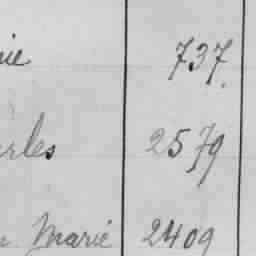 737.
rles 2579
Marie 2409